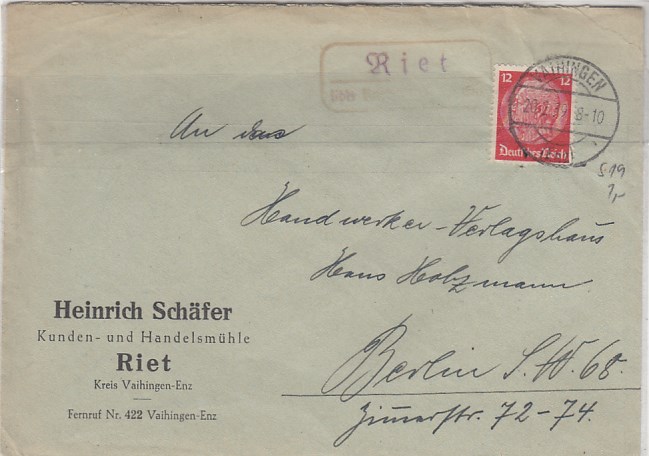 Riet
12 12
Deutsches Reich
VAIHINGEN
8-10
An das
Handwerker-Verlagshaus
Hans Holzmann.
Berlin S.W. 68.
Zimerstr. 72-74.
519
1,-
Heinrich Schäfer
Kunden- und Handelsmühle
Riet
Kreis Vaihingen-Enz
Fernruf Nr. 422 Vaihingen-Enz